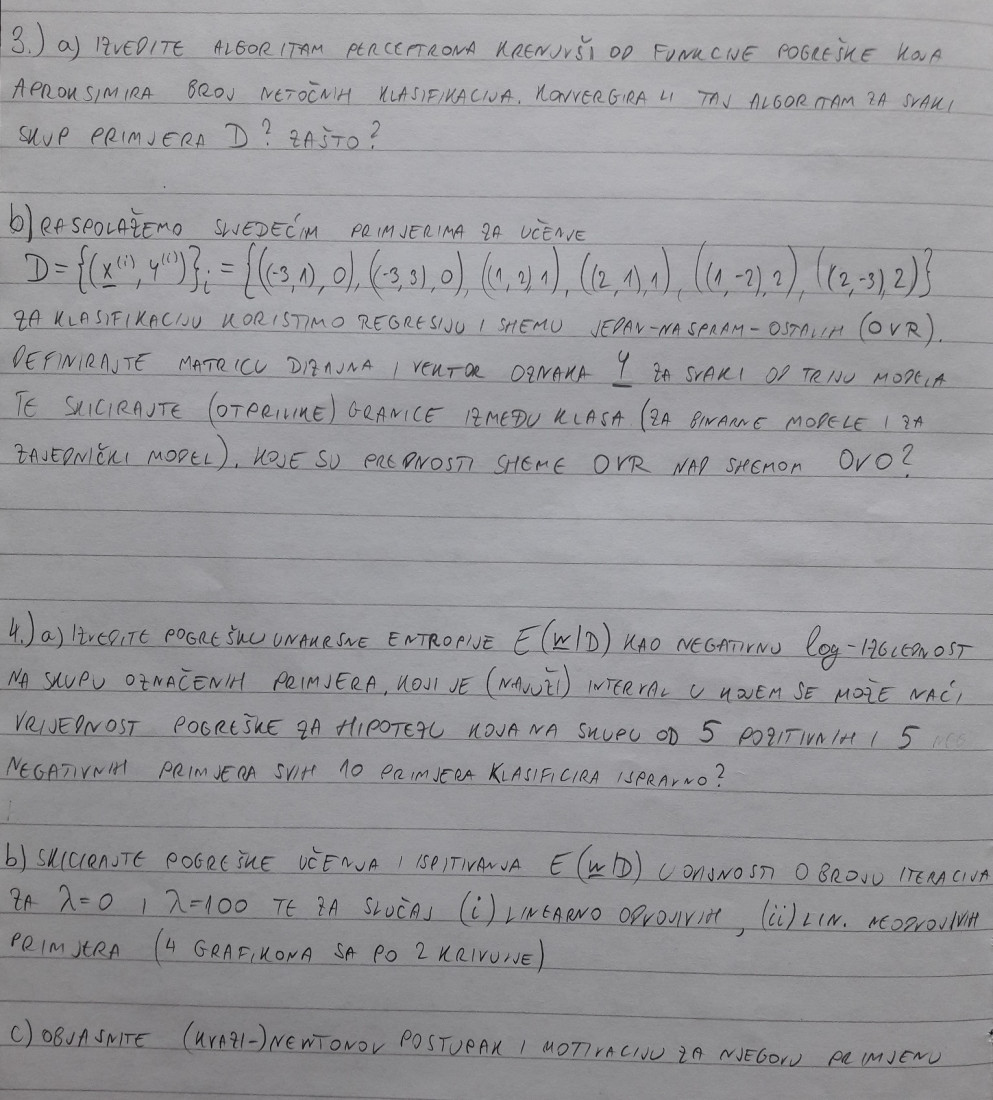 3.) a) IZVEDITE ALGORITAM PERCEPTRONA KRENUVŠI OD FUNKCIJE POGREŠKE KOJA
APROKSIMIRA BROJ NETOČNIH KLASIFIKACIJA. KONVERGIRA LI TAJ ALGORITAM ZA SVAKI
SKUP PRIMJERA D? ZAŠTO?
b) RASPOLAŽEMO SLJEDEĆIM PRIMJERIMA ZA UČENJE
D = {(x^(i), y^(i))}_i = {((-3,1), 0), ((-3,3), 0), ((1,2), 1), ((2,1), 1), ((1,-2), 2), ((2,-3), 2)}
ZA KLASIFIKACIJU KORISTIMO REGRESIJU I SHEMU JEDAN-NASPRAM-OSTALIH (OVR).
DEFINIRAJTE MATRICU DIZAJNA I VEKTOR OZNAKA y ZA SVAKI OD TRIJU MODELA
TE SKICIRAJTE (OTPRILIKE) GRANICE IZMEĐU KLASA (ZA BINARNE MODELE I ZA
ZAJEDNIČKI MODEL). KOJE SU PREDNOSTI SHEME OVR NAD SHEMOM OVO?
4.) a) IZVEDITE POGREŠKU UNAKRSNE ENTROPIJE E(w|D) KAO NEGATIVNU log-IZGLEDNOST
NA SKUPU OZNAČENIH PRIMJERA. KOJI JE (NAJUŽI) INTERVAL U KOJEM SE MOŽE NAĆI
VRIJEDNOST POGREŠKE ZA HIPOTEZU KOJA NA SKUPU OD 5 POZITIVNIH I 5
NEGATIVNIH PRIMJERA SVIH 10 PRIMJERA KLASIFICIRA ISPRAVNO?
b) SKICIRAJTE POGREŠKE UČENJA I ISPITIVANJA E(w|D) U ODNOSTI O BROJU ITERACIJA
ZA λ=0 I λ=100 TE ZA SLUČAJ (i) LINEARNO ODVOJIVIH, (ii) LIN. NEODVOJIVIH
PRIMJERA (4 GRAFIKONA SA PO 2 KRIVULJE)
c) OBJASNITE (KVAZI-)NEWTONOV POSTUPAK I MOTIVACIJU ZA NJEGOVU PRIMJENU